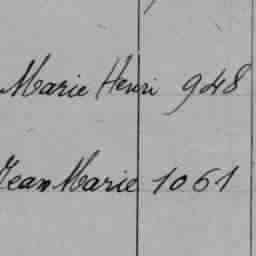 Marie Henri 948
Jean Marie 1061